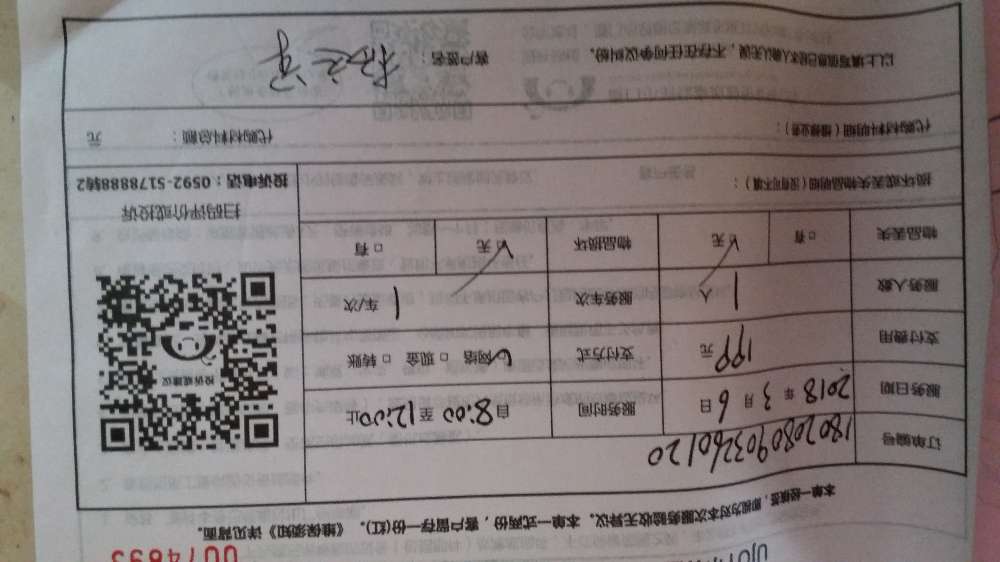 0074893
本单一经核签，即视为对本次服务验收无异议。本单一式两份，客户留存一份(红)。《维保须知》详见背面。
订单编号 1802080903260120
服务日期 2018 年 3 月 6 日 服务时间 自 8:00 至 12:00 止
支付费用 199 元 支付方式 ☑网络 □ 现金 □ 转账
服务人数 1 人 服务车次 1 车/次
物品丢失 □ 有 ☑ 无 物品损坏 ☑ 无 □ 有
损坏或丢失物品明细（没有可不填）：
投诉建议
扫码评价或投诉
投诉电话：0592-5178888转2
代购材料明细（维修业务）： 代购材料总额： 元
以上填写信息已经本人确认无误，不存在任何争议纠纷。 客户签名：